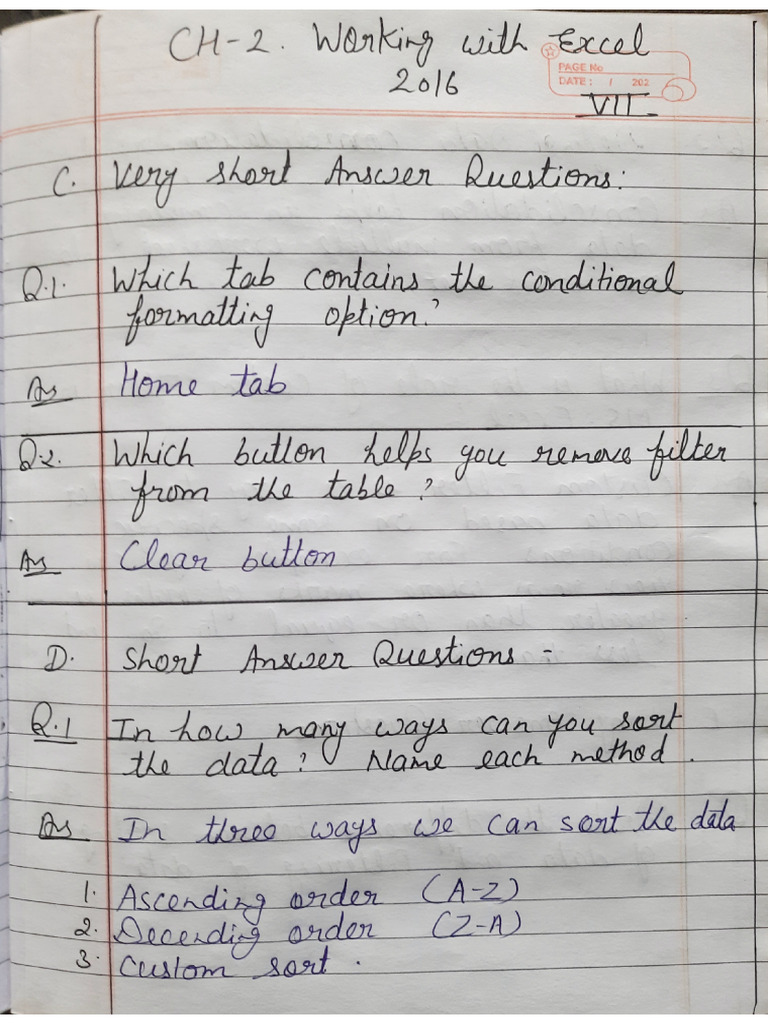 CH-2. Working with Excel
2016
PAGE No
DATE: / 202
VII
C. Very short Answer Questions:
Q.1. Which tab contains the conditional
formatting option?
As Home tab
Q.2. Which button helps you remove filter
from the table?
As Clear button
D. Short Answer Questions -
Q.1 In how many ways can you sort
the data? Name each method.
As In three ways we can sort the data
1. Ascending order (A-Z)
2. Decending order (Z-A)
3. Custom sort.